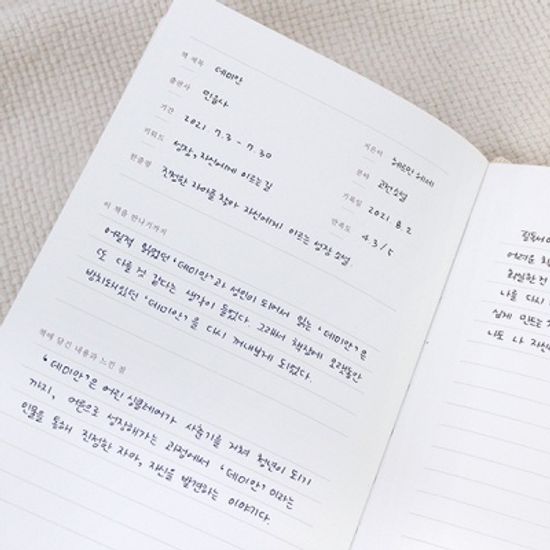 책 제목 데미안
출판사 민음사 지은이 헤르만 헤세
기간 2021. 7. 3 - 7. 30 분야 고전소설
키워드 성장, 자신에게 이르는 길 기록일 2021. 8. 2
한줄평 진정한 자아를 찾아 자신에게 이르는 성장 소설 만족도 4.3 / 5
이 책을 만나기까지
어릴적 읽었던 '데미안'과 성인이 되어서 읽는 '데미안'은
또 다를 것 같다는 생각이 들었다. 그래서 책장에 오랫동안
방치돼있던 '데미안'을 다시 꺼내보게 되었다.
책에 담긴 내용과 느낀 점
'데미안'은 어린 싱클레어가 사춘기를 거쳐 청년이 되기
까지, 어른으로 성장해가는 과정에서 '데미안'이라는
인물을 통해 진정한 자아, 자신을 발견하는 이야기다.
필독서
어려운
나를 다시
쉽게 만드는
나도 나 자신